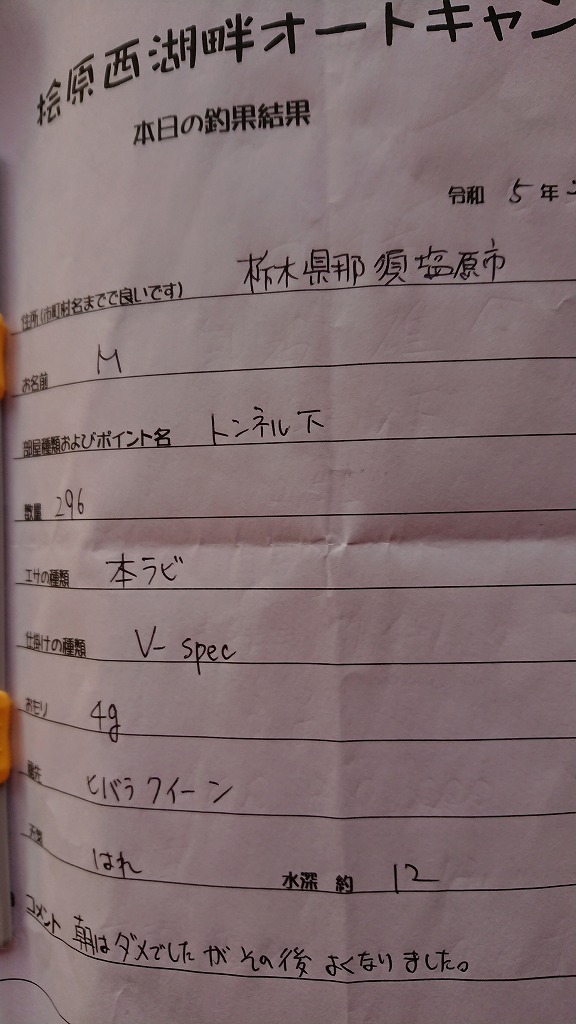 桧原西湖畔オートキャン
本日の釣果結果
令和 5 年
住所(市町村名までで良いです) 栃木県那須塩原市
お名前 M
部屋種類およびポイント名 トンネル下
数量 296
エサの種類 本ラビ
仕掛けの種類 V-spec
おもり 4g
穂先 ヒバラクイーン
天気 はれ 水深 約 12
コメント 朝はダメでしたがその後よくなりました。